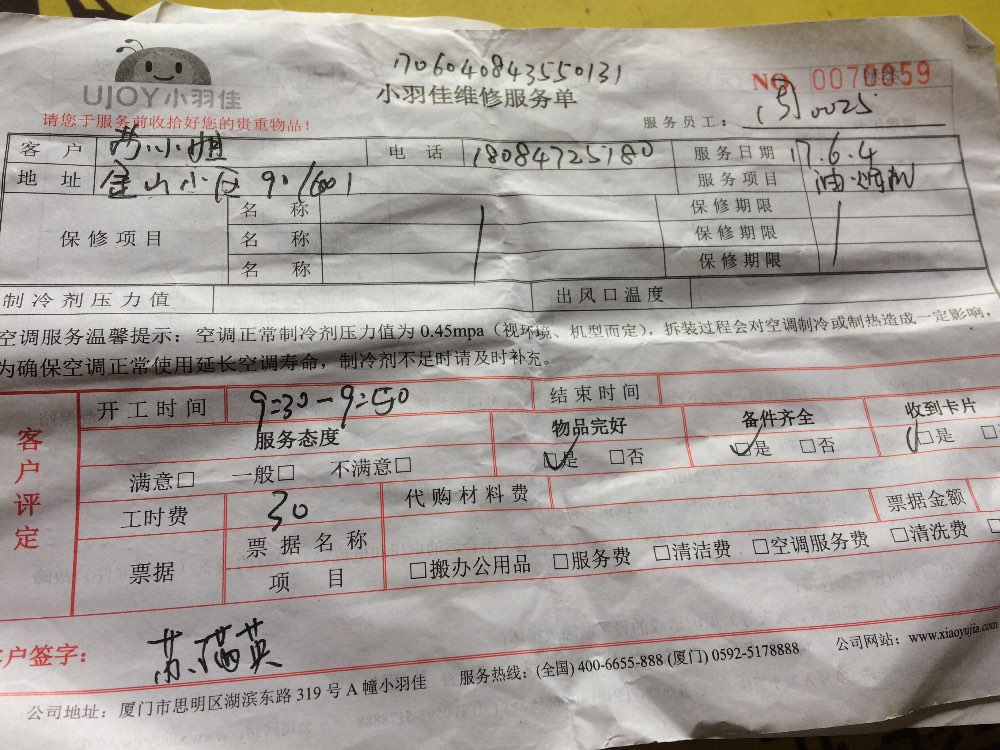 170604084355０131
UJOY小羽佳
小羽佳维修服务单
NO 0070059
请您于服务前收拾好您的贵重物品！
服务员工： 0025
客户 苏小姐 电话 18084725180 服务日期 17.6.4
地址 金山小区90/601 服务项目 油烟机
保修项目 名称 保修期限
名称 保修期限
名称 保修期限
制冷剂压力值 出风口温度
空调服务温馨提示：空调正常制冷剂压力值为0.45mpa（视环境、机型而定），拆装过程会对空调制冷或制热造成一定影响，
为确保空调正常使用延长空调寿命，制冷剂不足时请及时补充。
客户评定
开工时间 9:30-9:50 结束时间
服务态度 物品完好 备件齐全 收到卡片
满意□ 一般□ 不满意□ □是 □否 □是 □否 □是 □
工时费 30 代购材料费 票据金额
票据 票据名称
项目 □搬办公用品 □服务费 □清洁费 □空调服务费 □清洗费
户签字：苏瑞英
公司地址：厦门市思明区湖滨东路319号A幢小羽佳 服务热线：(全国) 400-6655-888 (厦门) 0592-5178888 公司网站：www.xiaoyujia.com